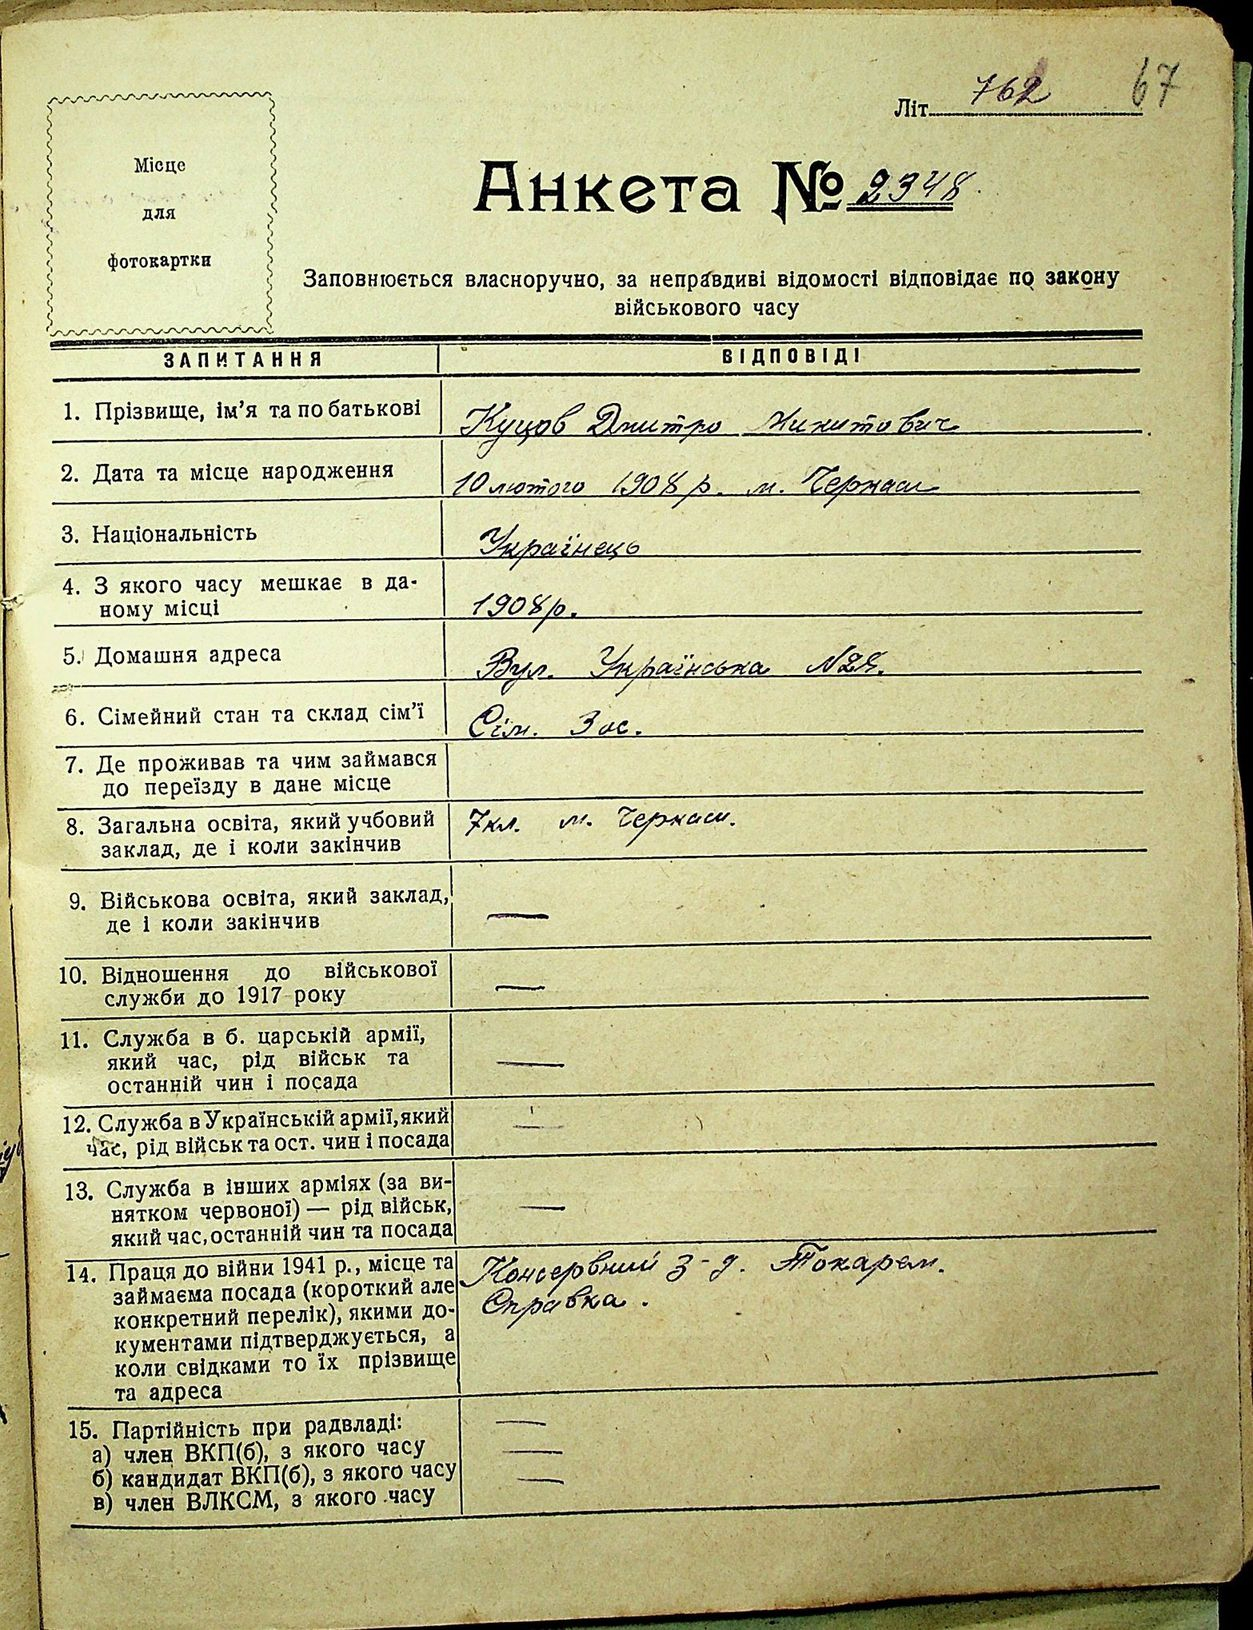 67
Літ. 762
Місце
для
фотокартки
Анкета № 2348.
Заповнюється власноручно, за неправдиві відомості відповідає по закону
військового часу
ЗАПИТАННЯ ВІДПОВІДІ
1. Прізвище, ім'я та по батькові Куцов Дмитро Микитович
2. Дата та місце народження 10 лютого 1908 р. м. Черкаси
3. Національність Українець
4. З якого часу мешкає в да-
ному місці 1908 р.
5. Домашня адреса Вул. Українська
6. Сімейний стан та склад сім'ї Сім. 3 ос.
7. Де проживав та чим займався
до переїзду в дане місце
8. Загальна освіта, який учбовий 7 кл. м. Черкаси.
заклад, де і коли закінчив
9. Військова освіта, який заклад,
де і коли закінчив —
10. Відношення до військової
служби до 1917 року —
11. Служба в б. царській армії,
який час, рід військ та —
останній чин і посада
12. Служба в Українській армії, який —
час, рід військ та ост. чин і посада
13. Служба в інших арміях (за ви-
нятком червоної) — рід військ, —
який час, останній чин та посада
14. Праця до війни 1941 р., місце та Консервний з-д. Токарем.
займаєма посада (короткий але Справка.
конкретний перелік), якими до-
кументами підтверджується, а
коли свідками то їх прізвище
та адреса
15. Партійність при радвладі: —
а) член ВКП(б), з якого часу —
б) кандидат ВКП(б), з якого часу —
в) член ВЛКСМ, з якого часу